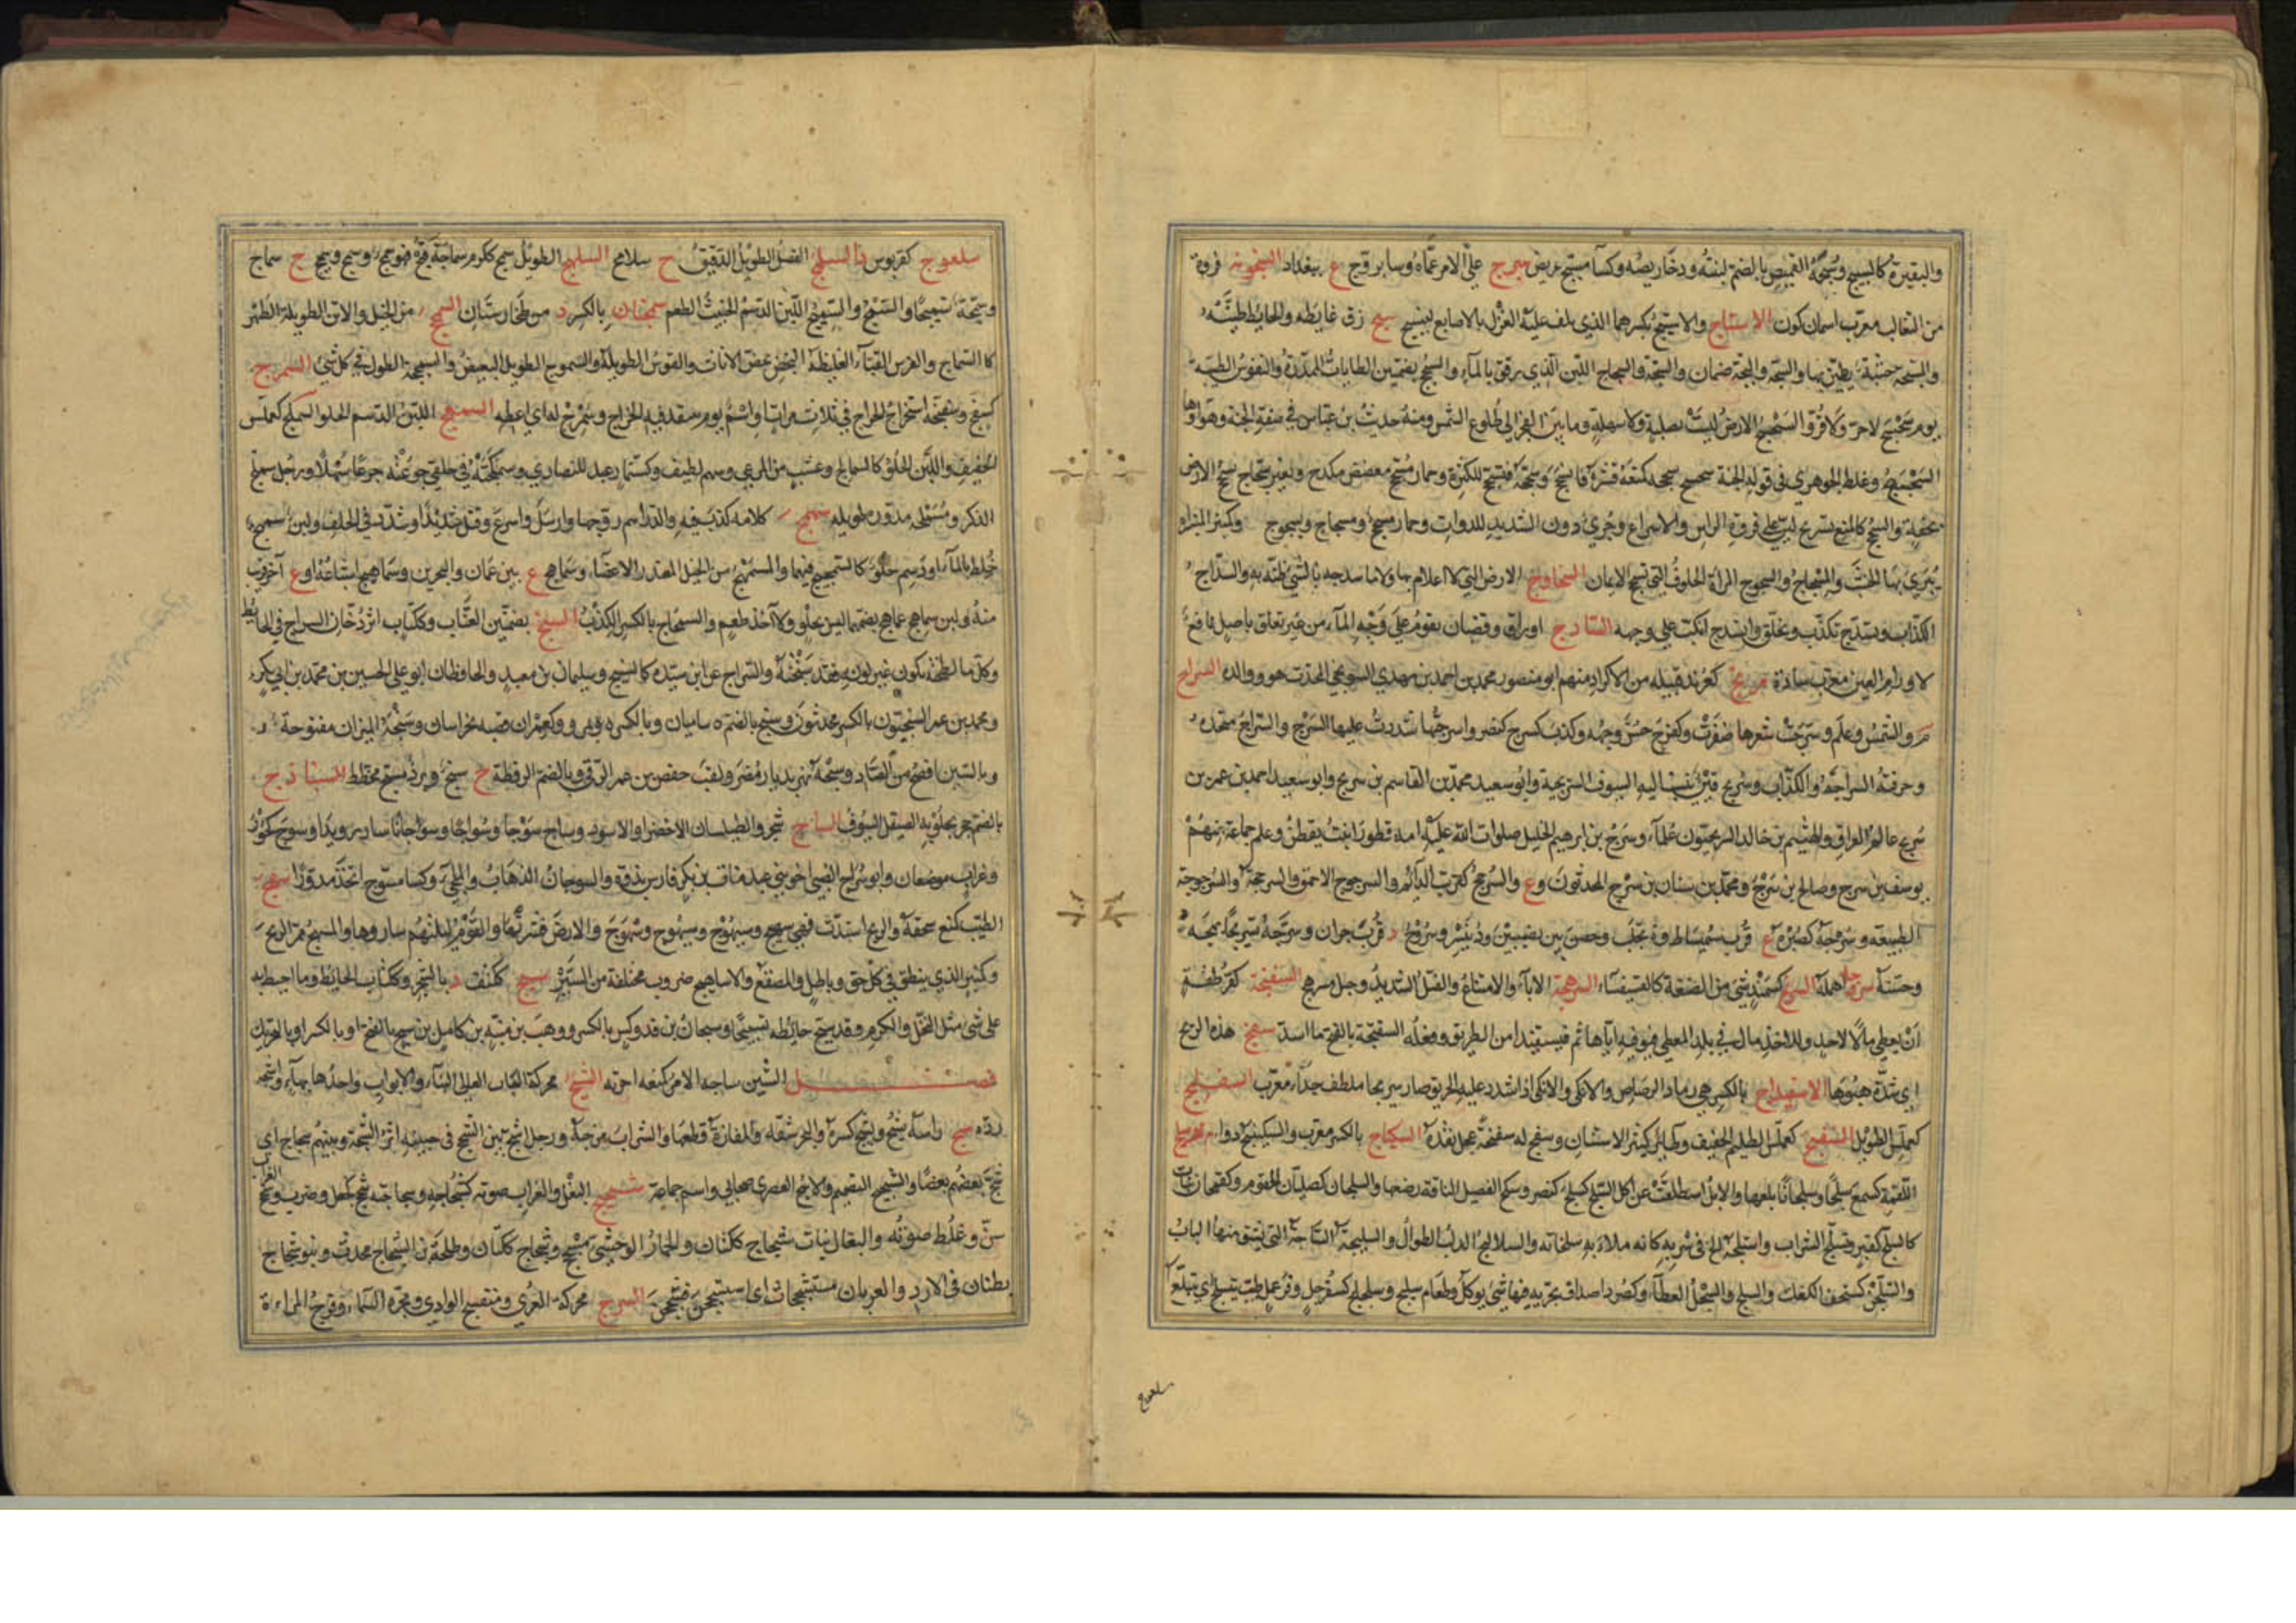 والبقيرة كالسبيج وسبجة القميص بالضم لبنته ودخاريصه وكسآ مسبج عريض سبرج على الامر عماه وسابروج ع ببغداد السبنجونة فروة
من الثعالب معرب اسمان كون الاستاج والاستيج بكسرهما الذي يلف عليه الغزل بالاصابع لينسج سج رق غايطه والحايط طينه
والمسجة خشبة يطين بها والسجة والبجة صنمان والسجة والسجاج اللبن الذي رقق بالمآء والسجج بضمتين الطايات الممدرة والنفوس الطيبة
يوم سجسج لا حر ولا قر والسجسج الارض ليست بصلبة ولا سهلة وما بين الفجر الى طلوع الشمس ومنه حديث بن عباس في صفة الجنة وهواوها
السجسج وغلط الجوهري في قوله الجنة سجسج سحجه كمنعه قشره فانسحج وسحجه فتسحج للكثرة وحمار مسحج معضض مكدح وبعير سحاج يسحج الارض
بخفه والسحج كالمنع تسريح لين على فروة الراس والاسراع وجري دون الشديد للدواب وحمار مسحج ومسحاج وسحوج وكمنبر المبراة
يبرى بها الخشب والمسحاج والسحوج المراة الحلوف التي تسحج الايمان السخاوج الارض التي لا اعلام بها ولا ما سدجه بالشي ظنه به والسداج
الكذاب وتسدج تكذب وتخلق وانسدج انكب على وجهه الساذج اوراق وقضبان يقوم على وجه المآء من غير تعلق باصل نافع
لاورام العين معرب ساذة سربج كعرند قبيله من الاكراد منهم ابو منصور محمد بن احمد بن مهدي السرنجي المحدث هو ووالده السراج
م والشمس وعلم وسرجت شعرها ضفرت وكفرح حسن وجهه وكذب كسرج كنصر واسرجتها شددت عليها السرج والسراج متخذه
وحرفته السراجة والكذاب وسريج قين ينسب اليه السيوف السريجية وابو سعيد محمد بن القاسم بن سريج وابو سعيد احمد بن عمر بن
سريج عالم العراق والهيثم بن خالد السريجيون علمآء وسرج بن ابرهيم الخليل صلوات الله عليه امه قطورا بنت يقطن وعلم جماعة منهم
يوسف بن سرج وصالح بن سرج ومحمد بن سنان بن سرج المحدثون وع والسرج كعرب الدائم والسرجوج الاحمق والسرججة والسرجوجة
الطبيعة وسرجة كصبره ع قرب سميساط وة بحلب وحصن بين نصيبين ودنيسر وسروج د قرب حران وسرجه تسريجا بهجه
وحسنه سرجله اهمله السرنج كسمند شي من الصنعة كالفسيفساء السرهجة الاباء والامتناع والفتل الشديد وحبل مسرهج السفتجة كقرطفة
ان يعطي مالا لاحد وللاخذ مال في بلد المعطي فيوفيه اياها ثم فيستفيد امن الطريق وفعله السفتجة بالفتح ما اسد سفج هذه الريح
اي شدة هبوبها الاسفيداج بالكسر هي رماد الرصاص والآنك والانك اذا شدد عليه الحريق صار سرنجا ملطف جدا معرب السفلج
كعملس الطويل السفنج كعملس الظليم الخفيف وطائر كثير الاستنان وسفنج له سفنجة عجل نقده السكباج بالكسر معرب والسكبينج دواء م سلج
اللقمة كسمع سلجا وسلجانا بلعها والابل استطلقت عن اكل السلج كسلج كنصر وسلج الفصيل الناقة رضعها والسلجان كصليان الحلقوم وكقمحان نبات
كالسلج كقبر وتسلج الشراب واستلجه الح في شربه كانه ملا به سلجانه والسلالج الدلب الطوال والسليجة الساجة التي يشق منها الباب
والسلجن كسنجف الكعك والسلج والسلج العطا وكصرد اصداف بحريه فيها شئ يوكل وطعام سليج وسلجلج كسفرجل وقرعملل طيب يتسلج اي يتبلع
سلعوج
سلعوج كقربوس د السلمج النصل الطويل الدقيق ج سلامج السلهج الطويل سمج ككرم سماجة قبح فهو سمج وسمج وسميج ج سماج
وسمجه تسميجا والسمج والسميج اللبن الدسم الخبيث الطعم سمنجان بالكسر د من طخارستان السمحج من الخيل والاتن الطويلة الظهر
كالسمحاج والفرس القبآء الغليظة النحض تخص الاناث والقوس الطويلة والسمحوج الطويل البغيض والسمحجة الطول في كل شئ السمرج
كسفنج وسفنجة استخراج الخراج في ثلاث مرات واسم يوم ينقد فيه الخراج وسمرج له اي اعطه السمعج اللبن الدسم الحلو السملج كعملس
الخفيف واللبن الحلو كالسمالج وعشب من المرعى وسهم لطيف وكسنمار عيد للنصارى وسملجته في حلقي جرعته جرعا سهلا ورجل سملج
الذكر ومسملجه مدوره طويله سمهج كلامه كذب فيه والدراهم روجها وارسل واسرع وفتل شديدا وشدد في الحلف ولبن سمهج
خلط بالمآء او دسم حلو كالسمهجيج فيهما والمسمهج من الخيل المعتدل الاعضاء وسماهج ع بين عمان والبحرين وسماهيج اشباعه او ع آخر قرب
منه ولبن سماهج عماهج بضمهما ليس بحلو ولا آخذ طعم والسمهاج بالكسر الكذب السنج بضمتين العناب وككتاب اثر دخان السراج في الحايط
وكل ما لطخته بلون غير لونه فقد سنجته والسراج عن ابن سيده كالسنيج وسليمان بن معبد والحافظان ابو علي الحسين بن محمد بن ابي بكر
ومحمد بن عمر السنجيون بالكسر محدثون وسنج بالضم ة بباميان وبالكسر ة بمرو وكعمران قصبه بخراسان وسنجة الميزان مفتوحة
وبالسين افصح من الصاد وسنجة نهر بديار مضر ولقب حفص بن عمر الرقي وبالضم الرقطة ج سنج وبرد مسنج مخطط السنباذج
بالضم حجر يجلو به الصيقل السيوف الساج شجر والطيلسان الاخضر او الاسود وساج سوجا وسواجا وسوجانا سار رويدا وسوج كحور
وغراب موضعان وابو سواج الضبي اخو بني عبد مناة بن بكر فارس بذوة والسوجان الذهاب والمجئ وكسا مسوج اتخذ مدورا سهج
الطيب كمنع سحقه والريح اشتدت فهي سيهج وسيهوج وسهوج وسهوج والارض قشرتها والقوم ليلتهم ساروها والمسهج ممر الريح
وكمنبر الذي ينطق في كل حق وباطل والمصقع والاساهيج ضروب مختلفة من السير سيج ككنف د بالشحر وككتاب الحايط وما احيط به
على شئ مثل النخل والكرم وقد سيج حائطه تسييجا وسيجان بن فدوكس بالكسر ووهب بن منبه بن كامل بن سيج بالفتح او بالكسر او بالتحريك
فصل الشين شاجه الامر كمنعه احزنه الشبج محركة الباب العالي البناء والابواب واحدها بهاء واشبجه
رده شج راسه يشج ويشج كسره والبحر شقه والمفازة قطعها والشراب مزجه ورجل اشج بين الشجج في جبينه اثر الشجة وبينهم شجاج اي
شج بعضهم بعضا والشجيج القيم والاشج العصري صحابي واسم جماعة شحيج البغل والغراب صوته كشحاجه وشحاجه شحج كجعل وضرب وشحج الغراب
سن وغلظ صوته والبغال بنات شحاج ككتان والحمار الوحشي مشحج وشحاج ككتان وطلحة بن الشحاج محدث وبنو شحاج
بطنان في الازد والغربان مستشحجات اي استشحجن فشحجن الشرج محركة العرى ومنفسح الوادي ومجرة السماء وفرج المراءة